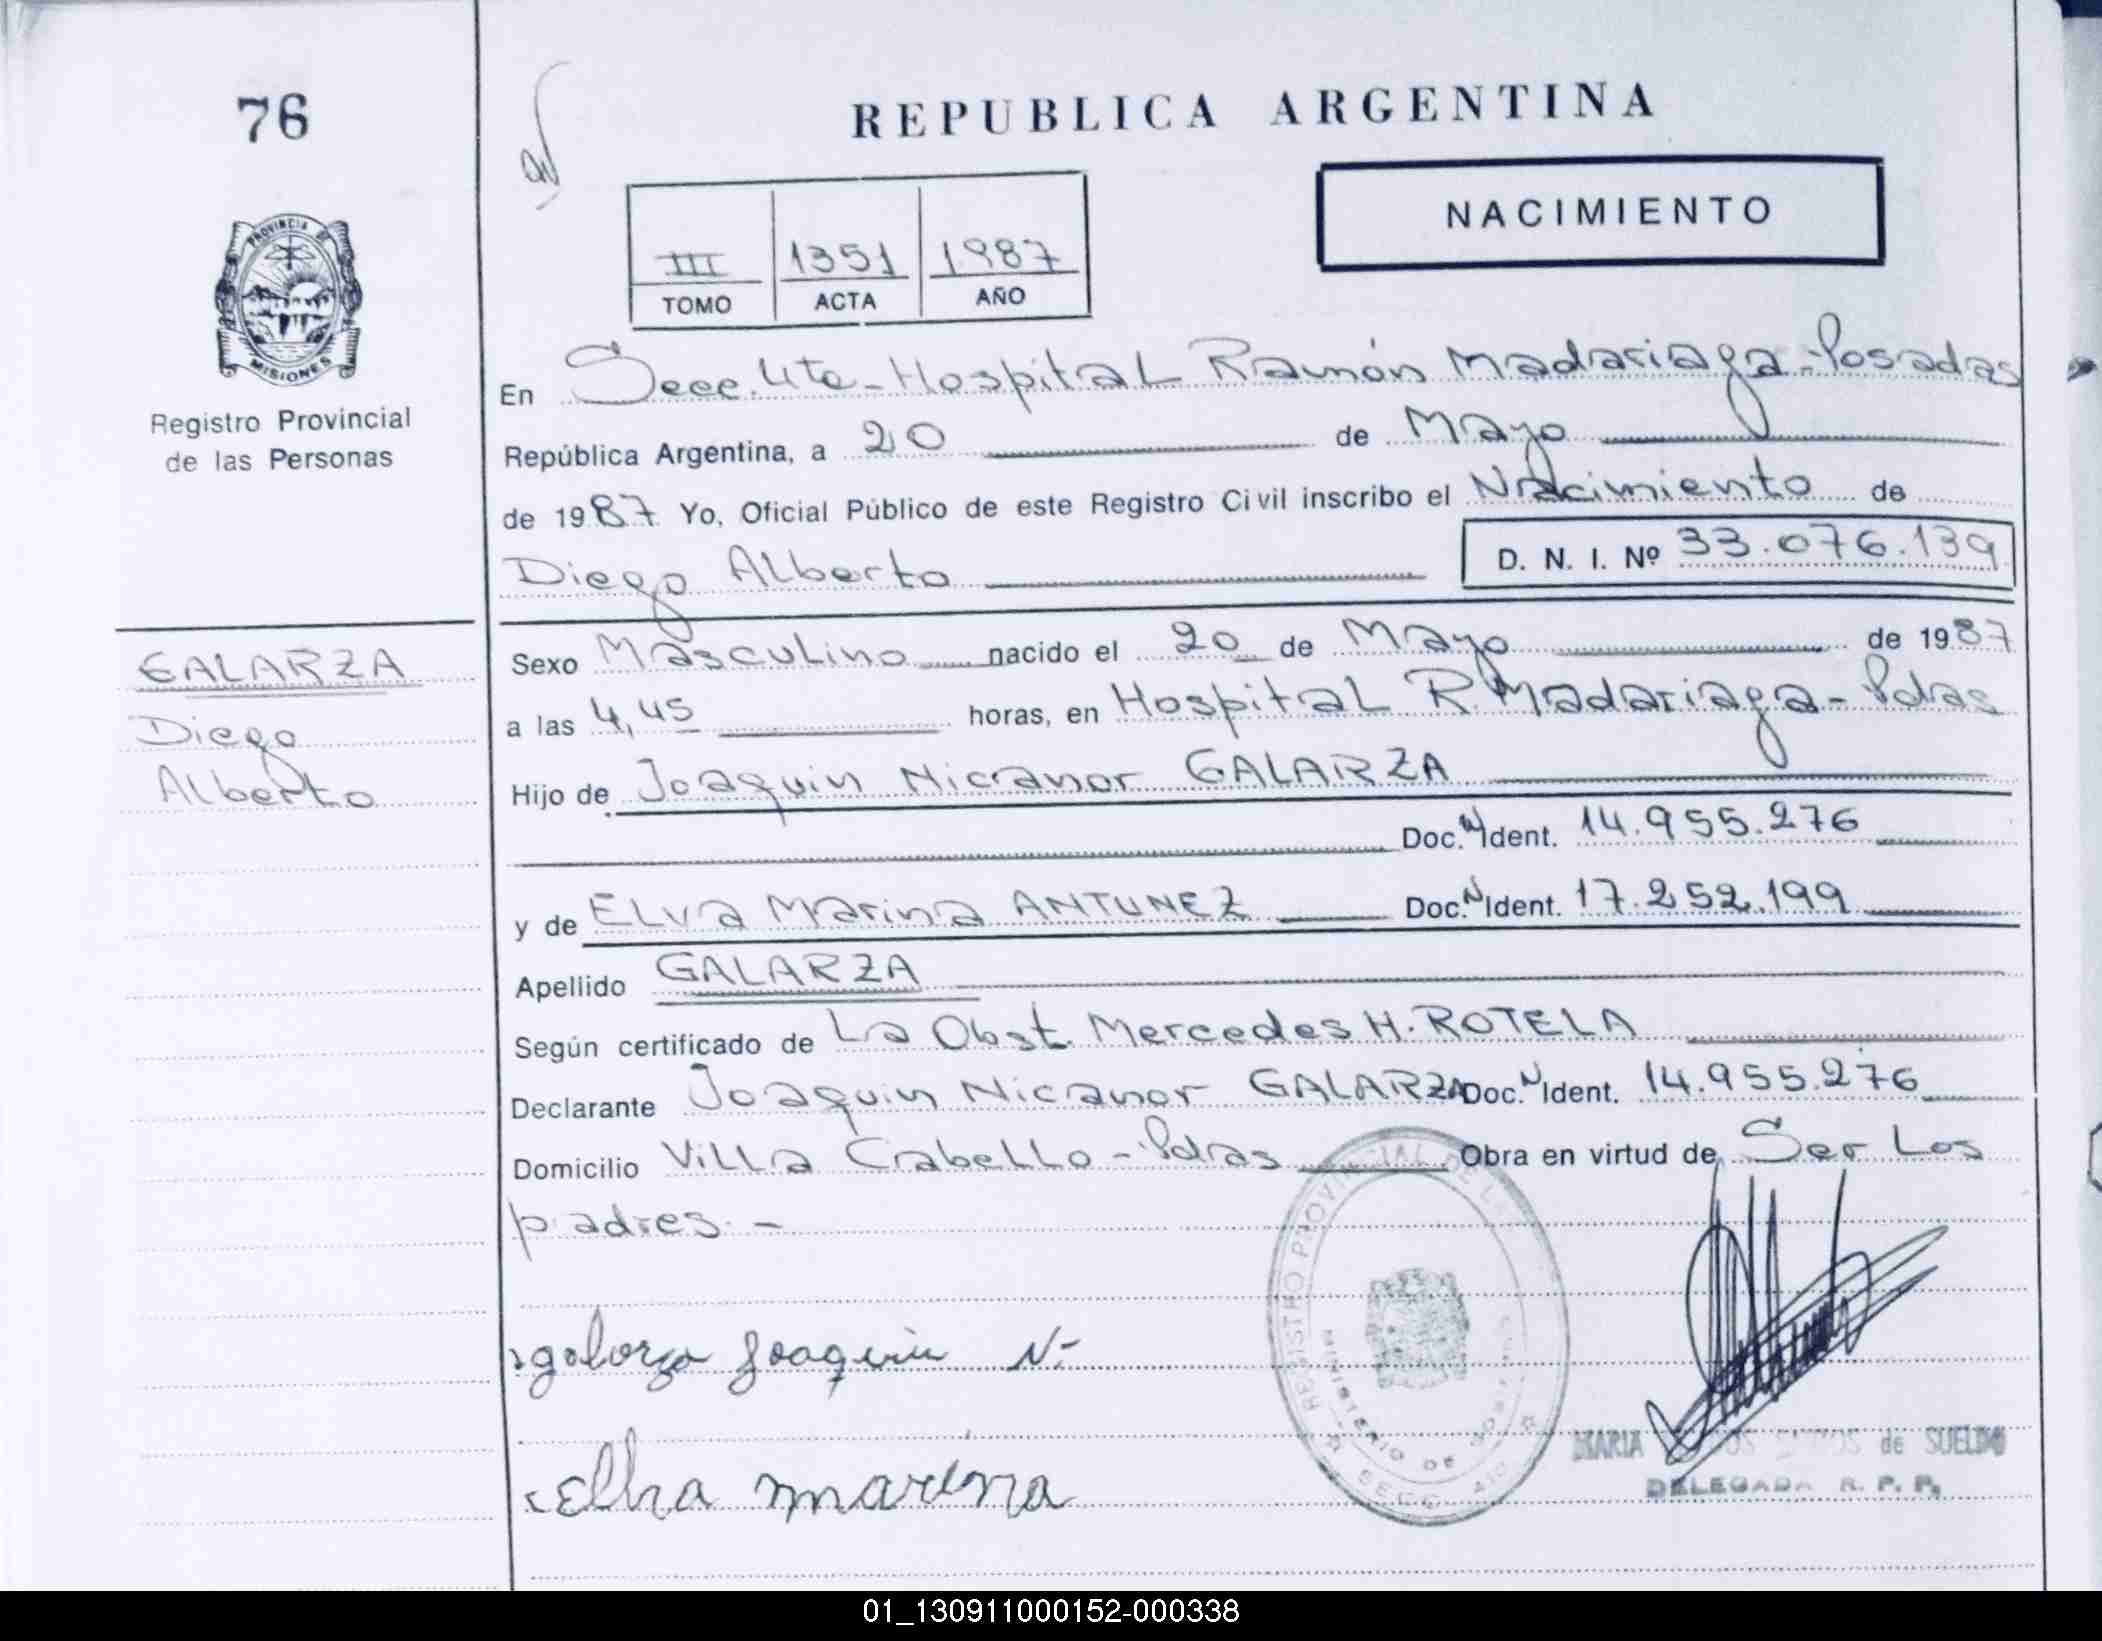 76
PROVINCIA DE
MISIONES
Registro Provincial
de las Personas
GALARZA
Diego
Alberto
REPUBLICA ARGENTINA
NACIMIENTO
III 1351 1987
TOMO ACTA AÑO
En Secc. 4ta - Hospital Ramón Madariaga - Posadas
República Argentina, a 20 de Mayo
de 1987 Yo, Oficial Público de este Registro Civil inscribo el Nacimiento de
Diego Alberto D. N. I. Nº 33.076.139
Sexo Masculino nacido el 20 de Mayo de 1987
a las 4,45 horas, en Hospital R. Madariaga - Pdas
Hijo de Joaquin Nicanor GALARZA
Doc. N Ident. 14.955.276
y de ELva Marina ANTUNEZ Doc. N Ident. 17.252.199
Apellido GALARZA
Según certificado de La Obst. Mercedes H. ROTELA
Declarante Joaquin Nicanor GALARZA Doc. N Ident. 14.955.276
Domicilio Villa Cabello - Pdas Obra en virtud de Ser Los
padres. -
galorza Joaquin N-
elba marina
REGISTRO PROVINCIAL DE LAS
MINISTERIO DE GOBIERNO
SECC. 4TA
MARIA de SUELDO
DELEGADA R. P. P.
01_130911000152-000338